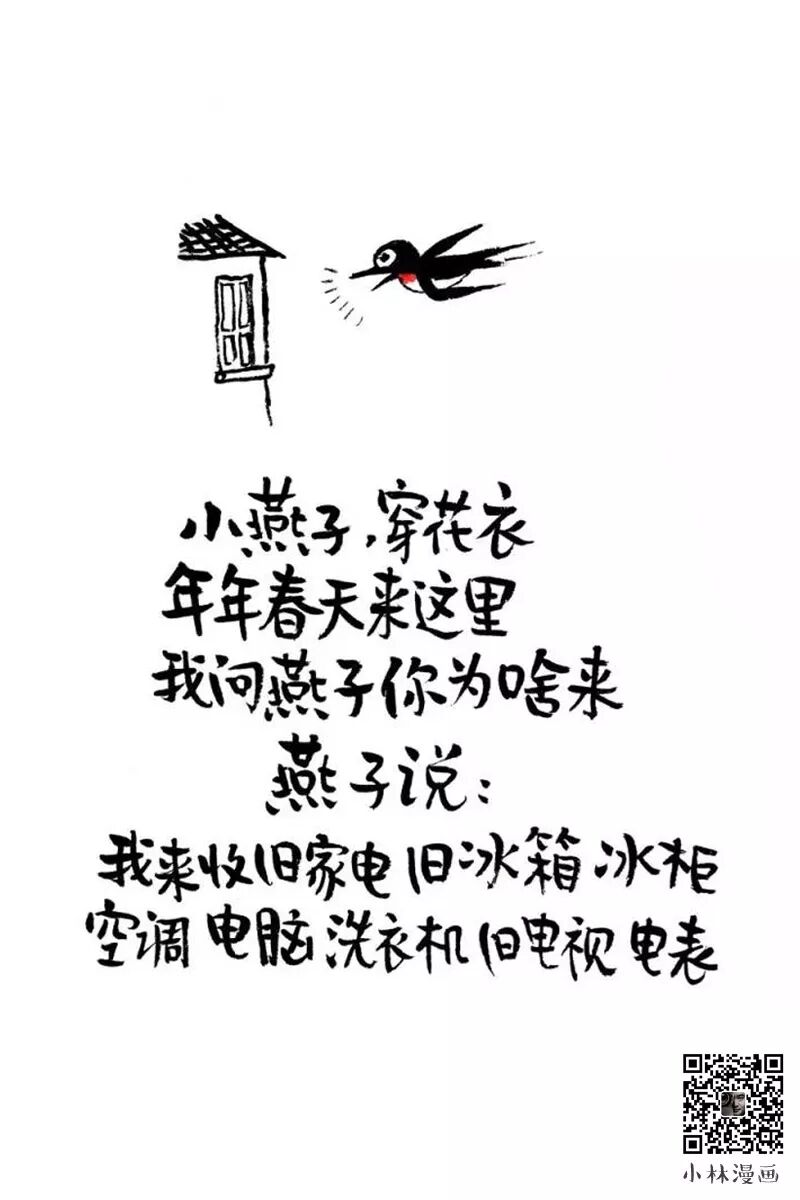 小燕子,穿花衣
年年春天来这里
我问燕子你为啥来
燕子说:
我来收旧家电 旧冰箱 冰柜
空调 电脑 洗衣机 旧电视 电表
小林漫画